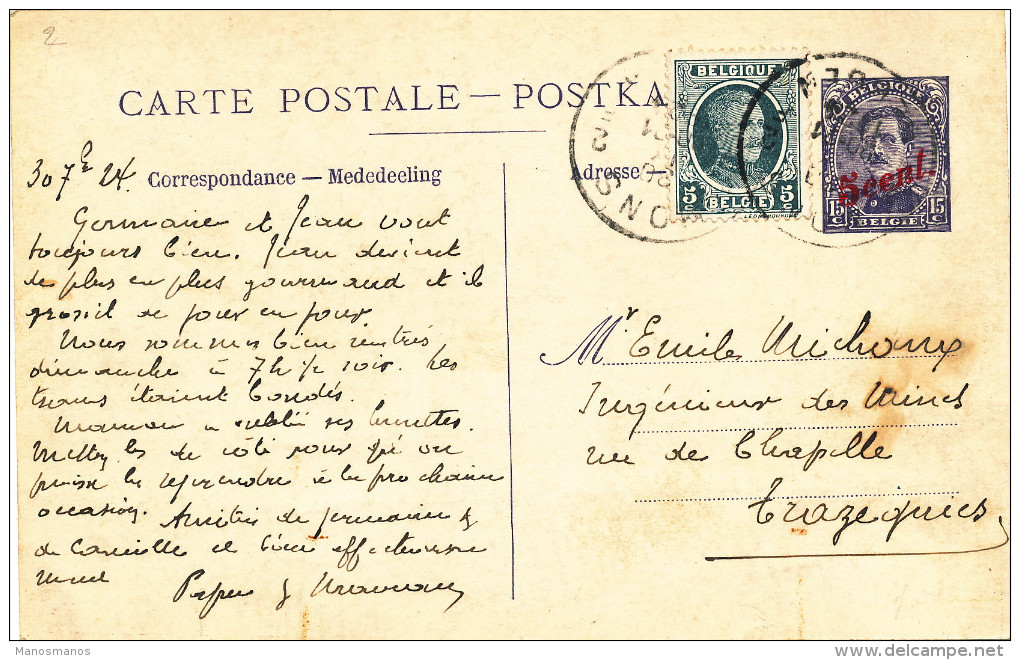 2
CARTE POSTALE — POSTKA
BELGIQUE
5c 5c
BELGIË
BELGIQUE
5cent.
15c 15c
BELGIË
MONS
30 7e 24. Correspondance — Mededeeling
Adresse —
Germaine et Jean vont
toujours bien. Jean devient
de plus en plus gourmand et il
grossit de jour en jour.
Nous sommes bien rentrés
dimanche à 7h 1/2 soir. Les
trams étaient bondés.
Maman a oublié ses lunettes.
Mettez les de côté pour qu'on
puisse les reprendre à la prochaine
occasion. Amitiés de Germaine &
de Camille et bien affectueuse
ment
Papa & Maman
Mr Emile Michaux
Ingénieur des Mines
rue de Chapelle
Trazegnies
Manosmanos
delcampe.net